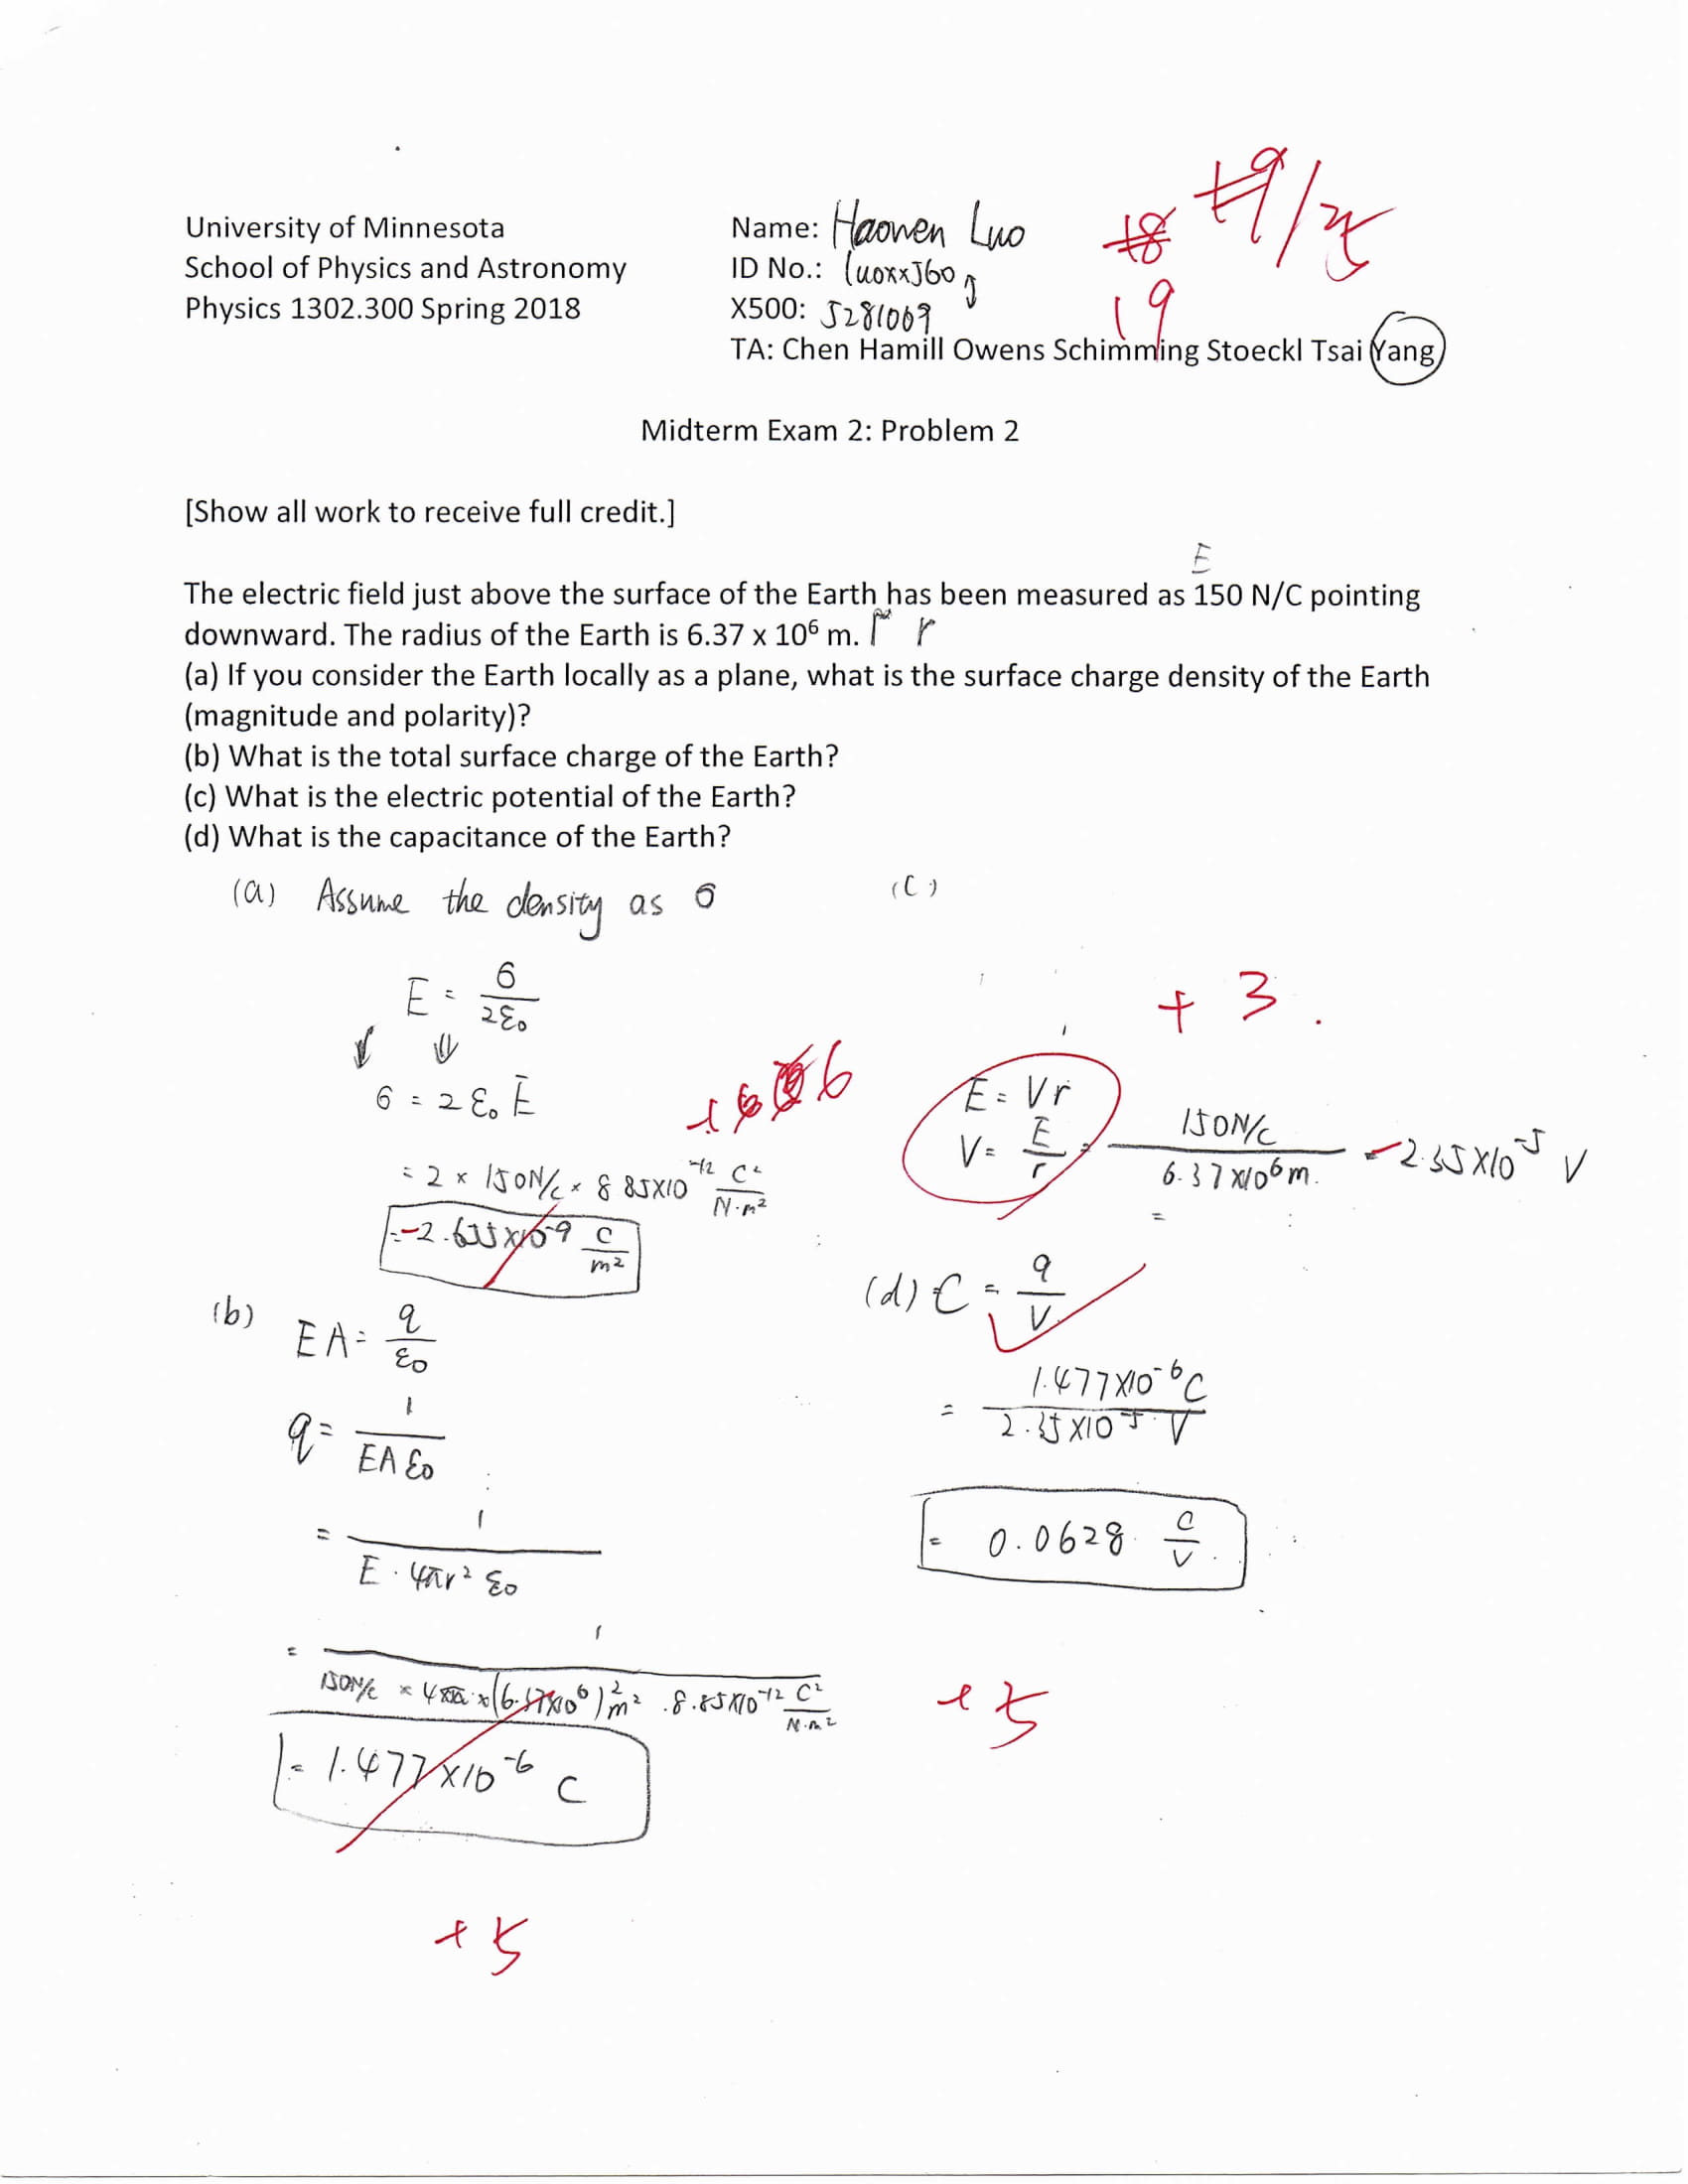 University of Minnesota
School of Physics and Astronomy
Physics 1302.300 Spring 2018
Name: Haowen Luo
ID No.: luoxx560
X500: 5281069
TA: Chen Hamill Owens Schimming Stoeckl Tsai Yang
18 19/25
19
Midterm Exam 2: Problem 2
[Show all work to receive full credit.]
E
The electric field just above the surface of the Earth has been measured as 150 N/C pointing
downward. The radius of the Earth is 6.37 x 10⁶ m. r
(a) If you consider the Earth locally as a plane, what is the surface charge density of the Earth
(magnitude and polarity)?
(b) What is the total surface charge of the Earth?
(c) What is the electric potential of the Earth?
(d) What is the capacitance of the Earth?
(a) Assume the density as σ
E = σ/2ε₀
⇓ ⇓
σ = 2ε₀E
= 2 × 150N/C × 8.85×10⁻¹² C²/N·m²
= -2.655×10⁻⁹ C/m²
+6
(b) EA = q/ε₀
q = 1/EAε₀
= 1/E·4πr²ε₀
= 1/150N/C × 4π × (6.37×10⁶)²m² · 8.85×10⁻¹² C²/N·m²
= 1.477×10⁻⁶ C
+5
(c)
+3.
E = Vr
V = E/r = 150N/C/6.37×10⁶m. = -2.35×10⁻⁵ V
=
(d) C = q/V
= 1.477×10⁻⁶C/2.35×10⁻⁵ V
= 0.0628 C/V.
+5